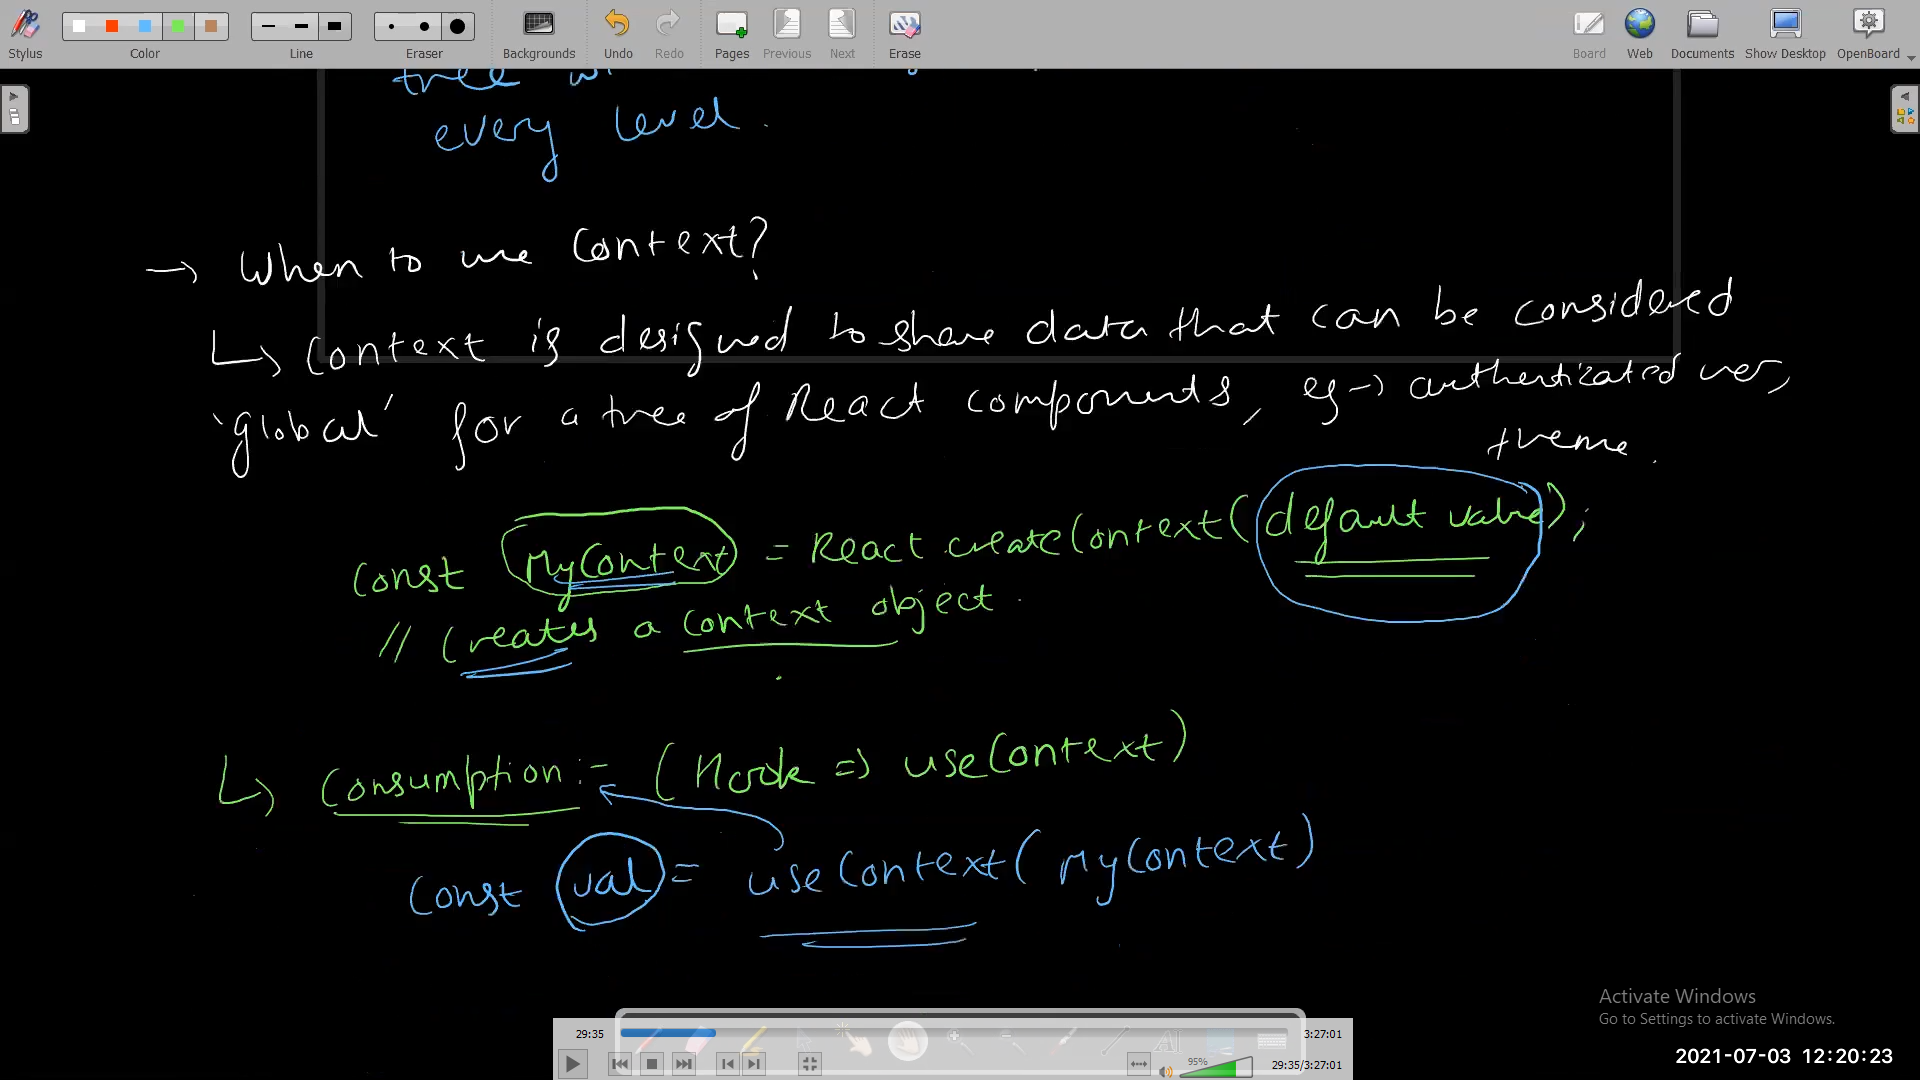 Stylus Color Line Eraser Backgrounds Undo Redo Pages Previous Next Erase Board Web Documents Show Desktop OpenBoard
tree
every level.
→ When to use Context?
↳ Context is designed to share data that can be considered
'global' for a tree of React components, eg → authenticated user,
theme.
const MyContext = React.createContext(default value);
// Creates a context object.
↳ Consumption :- (Hook => useContext)
const val = useContext(MyContext)
Activate Windows
Go to Settings to activate Windows.
29:35 3:27:01
95% 29:35/3:27:01
2021-07-03 12:20:23